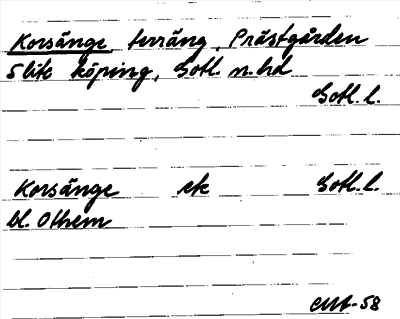 Korsänge terräng, Prästgården
Slite köping, Gotl. n. hd
Gotl. l.
Korsänge ek Gotl. l.
bl. Othem
-58